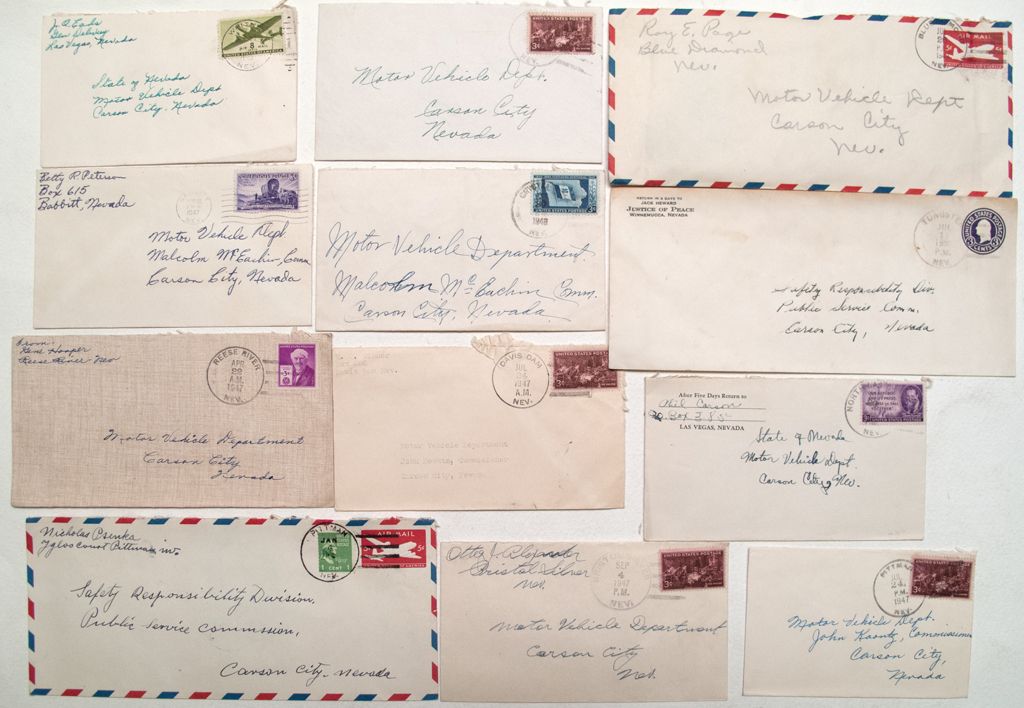 J. Q. Eads
Gen Delivery
Las Vegas, Nevada
8¢
AIR MAIL
UNITED STATES OF AMERICA
NEV.
State of Nevada
Motor Vehicle Dept
Carson City, Nevada
UNITED STATES POSTAGE
3¢
NEV.
Motor Vehicle Dept.
Carson City
Nevada
Roy E. Page
Blue Diamond
Nev.
AIR MAIL
5¢
NEV.
Motor Vehicle Dept
Carson City
Nev.
Betty R. Peterson
Box 615
Babbitt, Nevada
1947
Motor Vehicle Dept.
Malcolm McEachin, Comm
Carson City, Nevada
1948
NEV.
UNITED STATES POSTAGE
3¢
Motor Vehicle Department
Malcolm McEachin Comm.
Carson City, Nevada
RETURN IN 5 DAYS TO
JACK HEWARD
JUSTICE OF PEACE
WINNEMUCCA, NEVADA
P.M.
NEV.
UNITED STATES POSTAGE
3 CENTS
Safety Responsibility Div.
Public Service Comm.
Carson City, Nevada
From:
Rene Hooper
Reese River Nev
REESE RIVER
APR
29
A.M.
1947
NEV.
3¢
Motor Vehicle Department
Carson City
Nevada
DAVIS DAM
JUL
24
1947
A.M.
NEV.
UNITED STATES POSTAGE
3¢
Motor Vehicle Department
John Koontz, Commissioner
Carson City, Nevada
After Five Days Return to
Phil Carson
P.O. Box 385
LAS VEGAS, NEVADA
NORTH
NEV.
State of Nevada
Motor Vehicle Dept.
Carson City, Nev.
Nicholas Psinka
Pittman
PITTMAN
JAN
NEV.
1 CENT 1
AIR MAIL
5¢
Safety Responsibility Division,
Public Service Commssion,
Carson City, Nevada
Otto J. Alexander
Bristol Silver
Nev.
SEP
4
1947
P.M.
NEV.
UNITED STATES POSTAGE
3¢
Motor Vehicle Department
Carson City
Nev.
PITTMAN
JUL
24
P.M.
1947
NEV.
UNITED STATES POSTAGE
3¢
Motor Vehicle Dept.
John Koontz, Commissioner
Carson City,
Nevada